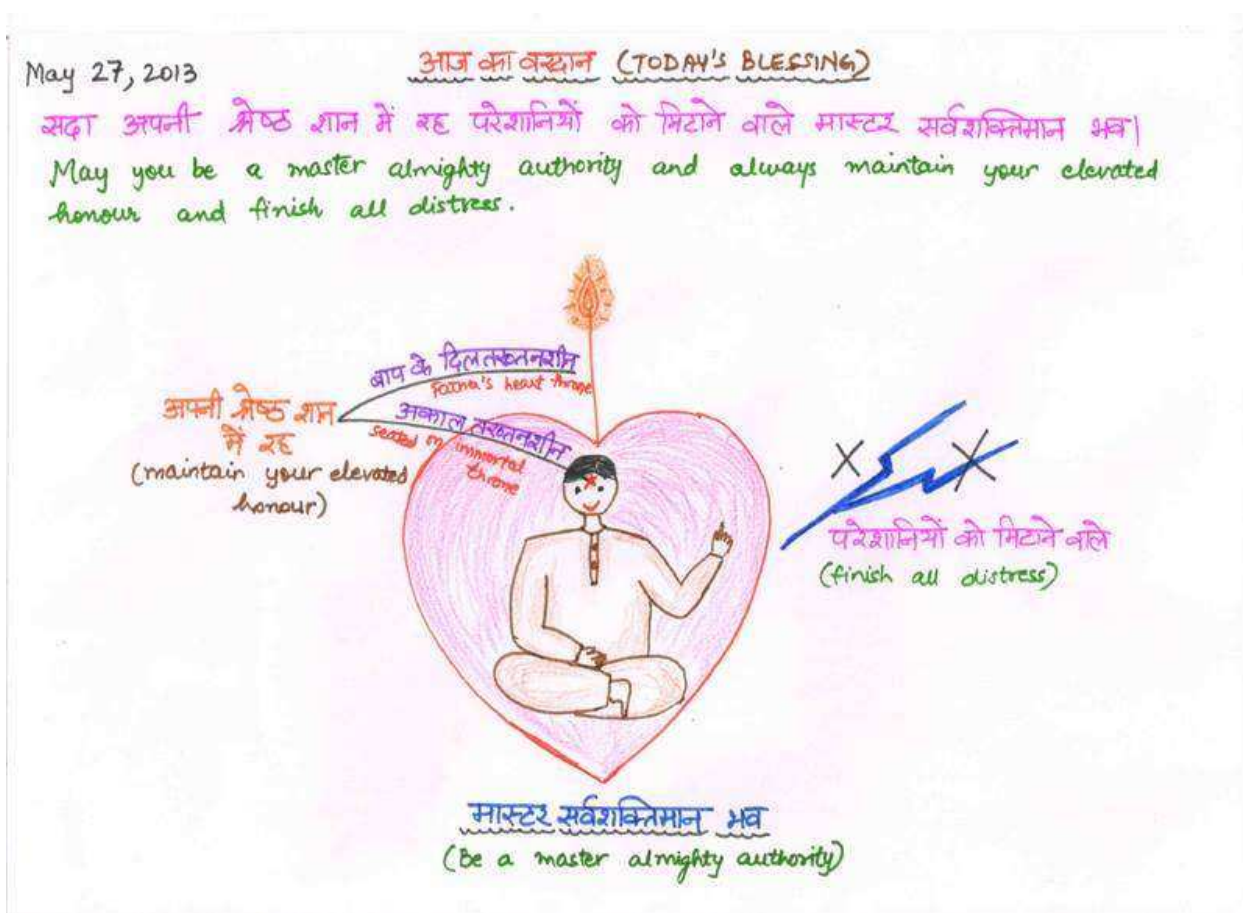 May 27, 2013
आज का वरदान (TODAY'S BLESSING)
सदा अपनी श्रेष्ठ शान में रह परेशानियों को मिटाने वाले मास्टर सर्वशक्तिमान भव|
May you be a master almighty authority and always maintain your elevated
honour and finish all distress.
बाप के दिलतख्तनशीन
Father's heart throne
अपनी श्रेष्ठ शान
में रह
(maintain your elevated
honour)
अकाल तख्तनशीन
seated on immortal
throne
परेशानियों को मिटाने वाले
(finish all distress)
मास्टर सर्वशक्तिमान भव
(Be a master almighty authority)